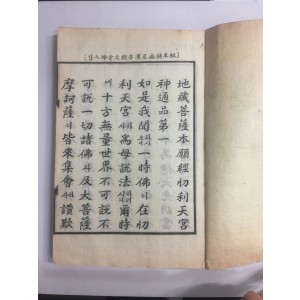 地藏菩薩本願經忉利天宮
神通品第一
如是我聞 一時佛이在忉
利天宮 爲母說法 爾時
十方無量世界不可說不
可說一切諸佛 及大菩薩
摩訶薩이皆來集會 讚歎